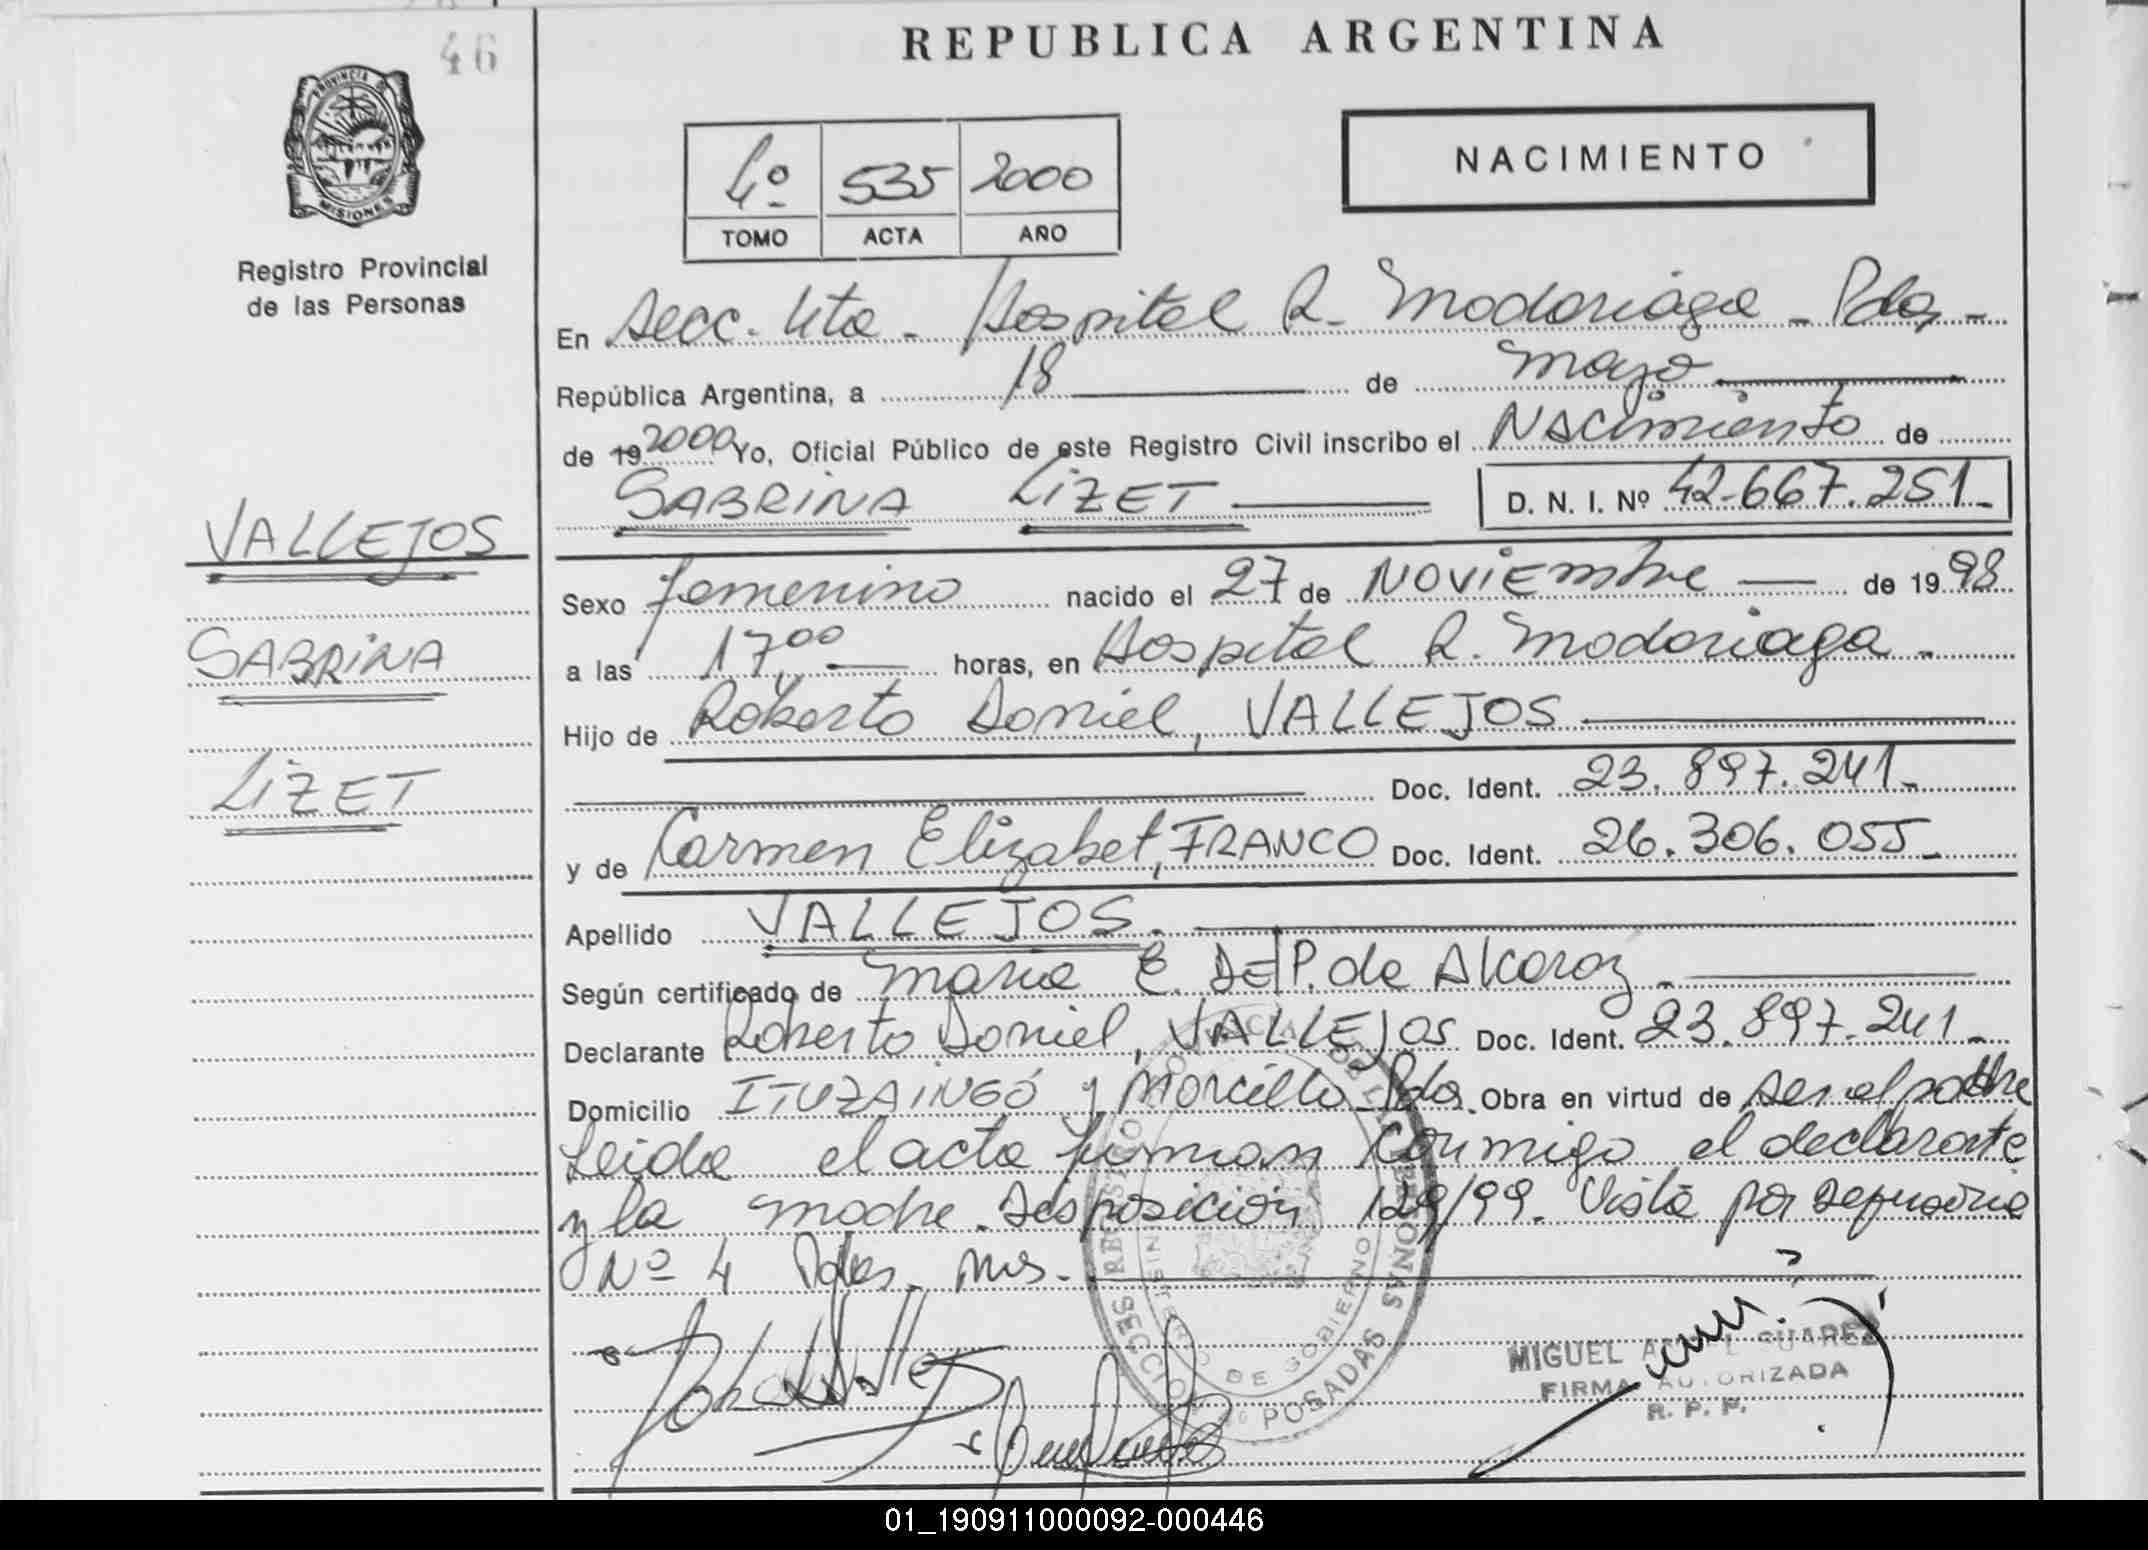 46
REPUBLICA ARGENTINA
PROVINCIA DE
MISIONES
Registro Provincial
de las Personas
4º 535 2000
TOMO ACTA AÑO
NACIMIENTO
En Secc. 4ta - Hospital R. Madariaga - Pdas -
República Argentina, a 18 de mayo
de 19 2000 Yo, Oficial Público de este Registro Civil inscribo el Nacimiento de
SABRINA LIZET D. N. I. Nº 42.667.251-
VALLEJOS
SABRINA
LIZET
Sexo femenino nacido el 27 de Noviembre de 19 98
a las 17,00 horas, en Hospital R. Madariaga -
Hijo de Roberto Daniel, VALLEJOS
Doc. Ident. 23.897.241-
y de Carmen Elizabet, FRANCO Doc. Ident. 26.306.055-
Apellido VALLEJOS.
Según certificado de Maria E. Del P. de Alcaraz -
Declarante Roberto Daniel, VALLEJOS Doc. Ident. 23.897.241-
Domicilio ITUZAINGÓ y Morcillo - Pdas. Obra en virtud de ser el padre
Leida el acta firman conmigo el declarante
y la madre. Disposición 129/99. Vista por Defensoria
Nº 4 Pdas. Ms.
REGISTRO PROVINCIAL DE LAS PERSONAS
MINISTERIO DE GOBIERNO
SECCION
POSADAS
MIGUEL ANGEL SUAREZ
FIRMA AUTORIZADA
R. P. P.
01_190911000092-000446